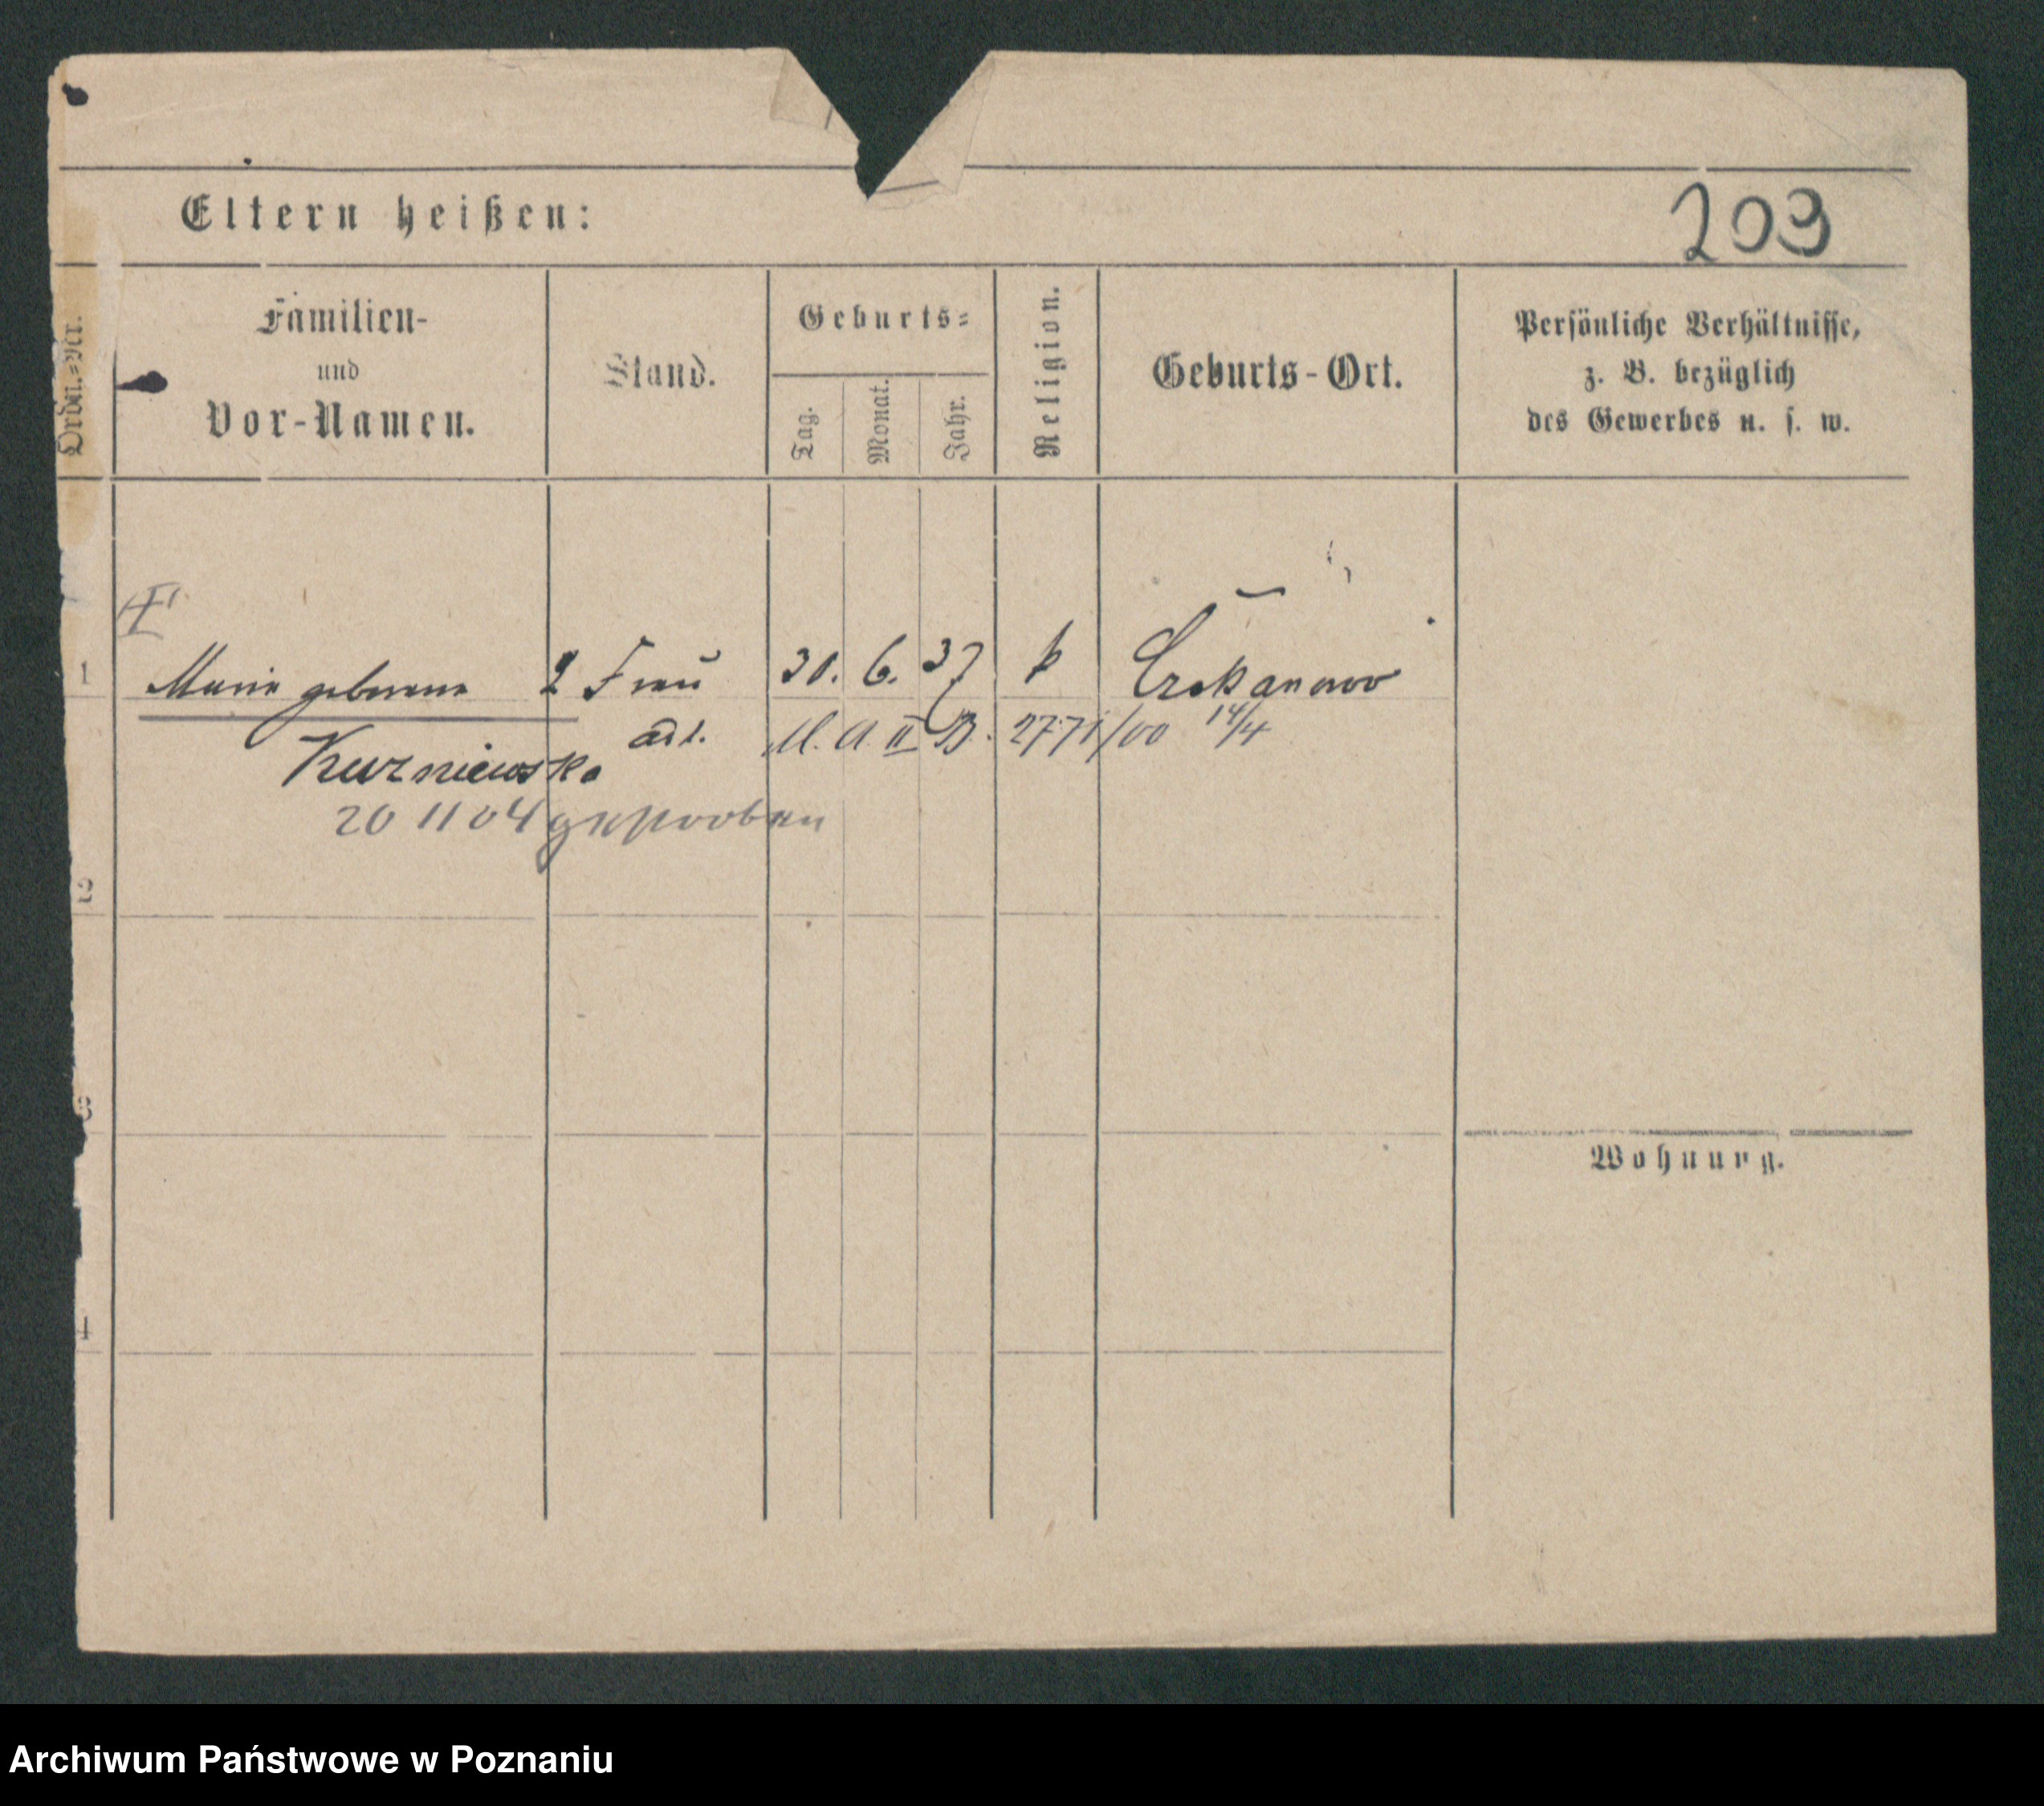 Eltern heißen:
209
Ordn.=Nr.
Familien-
und
Vor-Namen.
Stand.
Geburts=
Tag.
Monat.
Jahr.
Religion.
Geburts-Ort.
Persönliche Verhältnisse,
z. B. bezüglich
des Gewerbes u. s. w.
1 Marie geborene Frau 30. 6. 37 k
M. A. II B. 2771/00 14/4
Kuzniewska
20 11 04 gestorben
2
3
Wohnung.
4
Archiwum Państwowe w Poznaniu